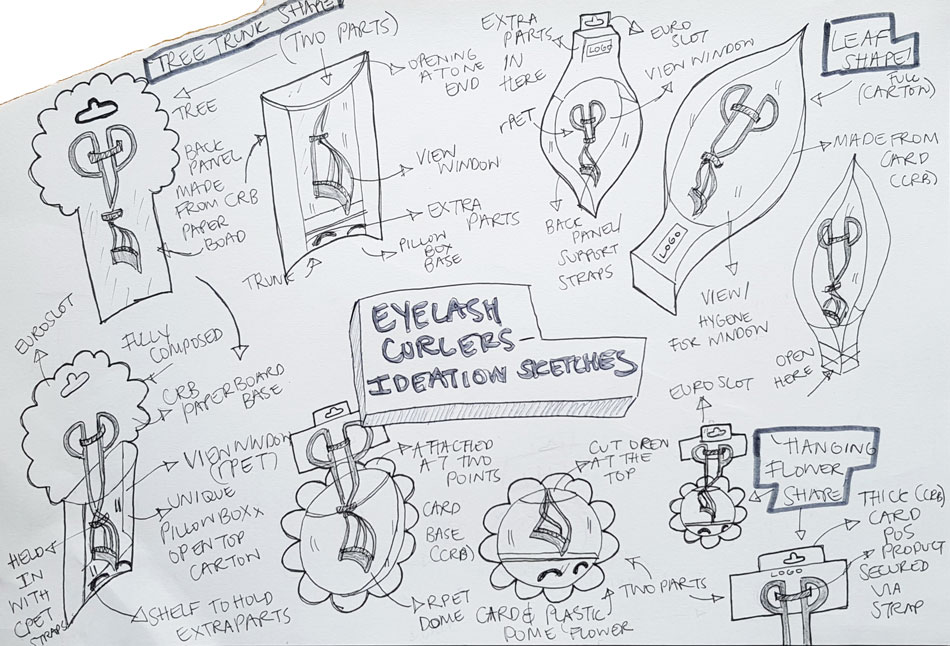 TREE TRUNK SHAPE
(TWO PARTS)
TREE
BACK
PANEL
MADE
FROM CRB
PAPER
BOAD
OPENING
AT ONE
END
VIEW
WINDOW
EXTRA
PARTS
PILLOW
BOX
BASE
TRUNK
EXTRA
PARTS
IN
HERE
LOGO
EURO
SLOT
VIEW WINDOW
rPET
BACK
PANEL/
SUPPORT
STRAPS
LEAF
SHAPE
FULL
(CARTON)
MADE FROM
CARD
(CRB)
LOGO
VIEW/
HYGENE
FOR WNDOW
OPEN
HERE
EYELASH
CURLERS-
IDEATION SKETCHES
EUROSLOT
FULLY
COMPOSED
CRB
PAPERBOARD
BASE
VIEW WNDOW
(CPET)
UNIQUE
PILLOW BOXX
OPEN TOP
CARTON
HELD
IN
WITH
CPET
STRAPS
SHELF TO HOLD
EXTRA PARTS
ATTACTLED
AT TWO
POINTS
CARD
BASE
(CRB)
RPET
DOME
CUT OPEN
AT THE
TOP
CARD & PLASTIC
DOME FLOWER
TWO PARTS
EUROSLOT
HANGING
FLOWER
SHAPE
THICK (CRB)
CARD
POS
PRODUCT
SECURED
VIA
STRAP
LOGO